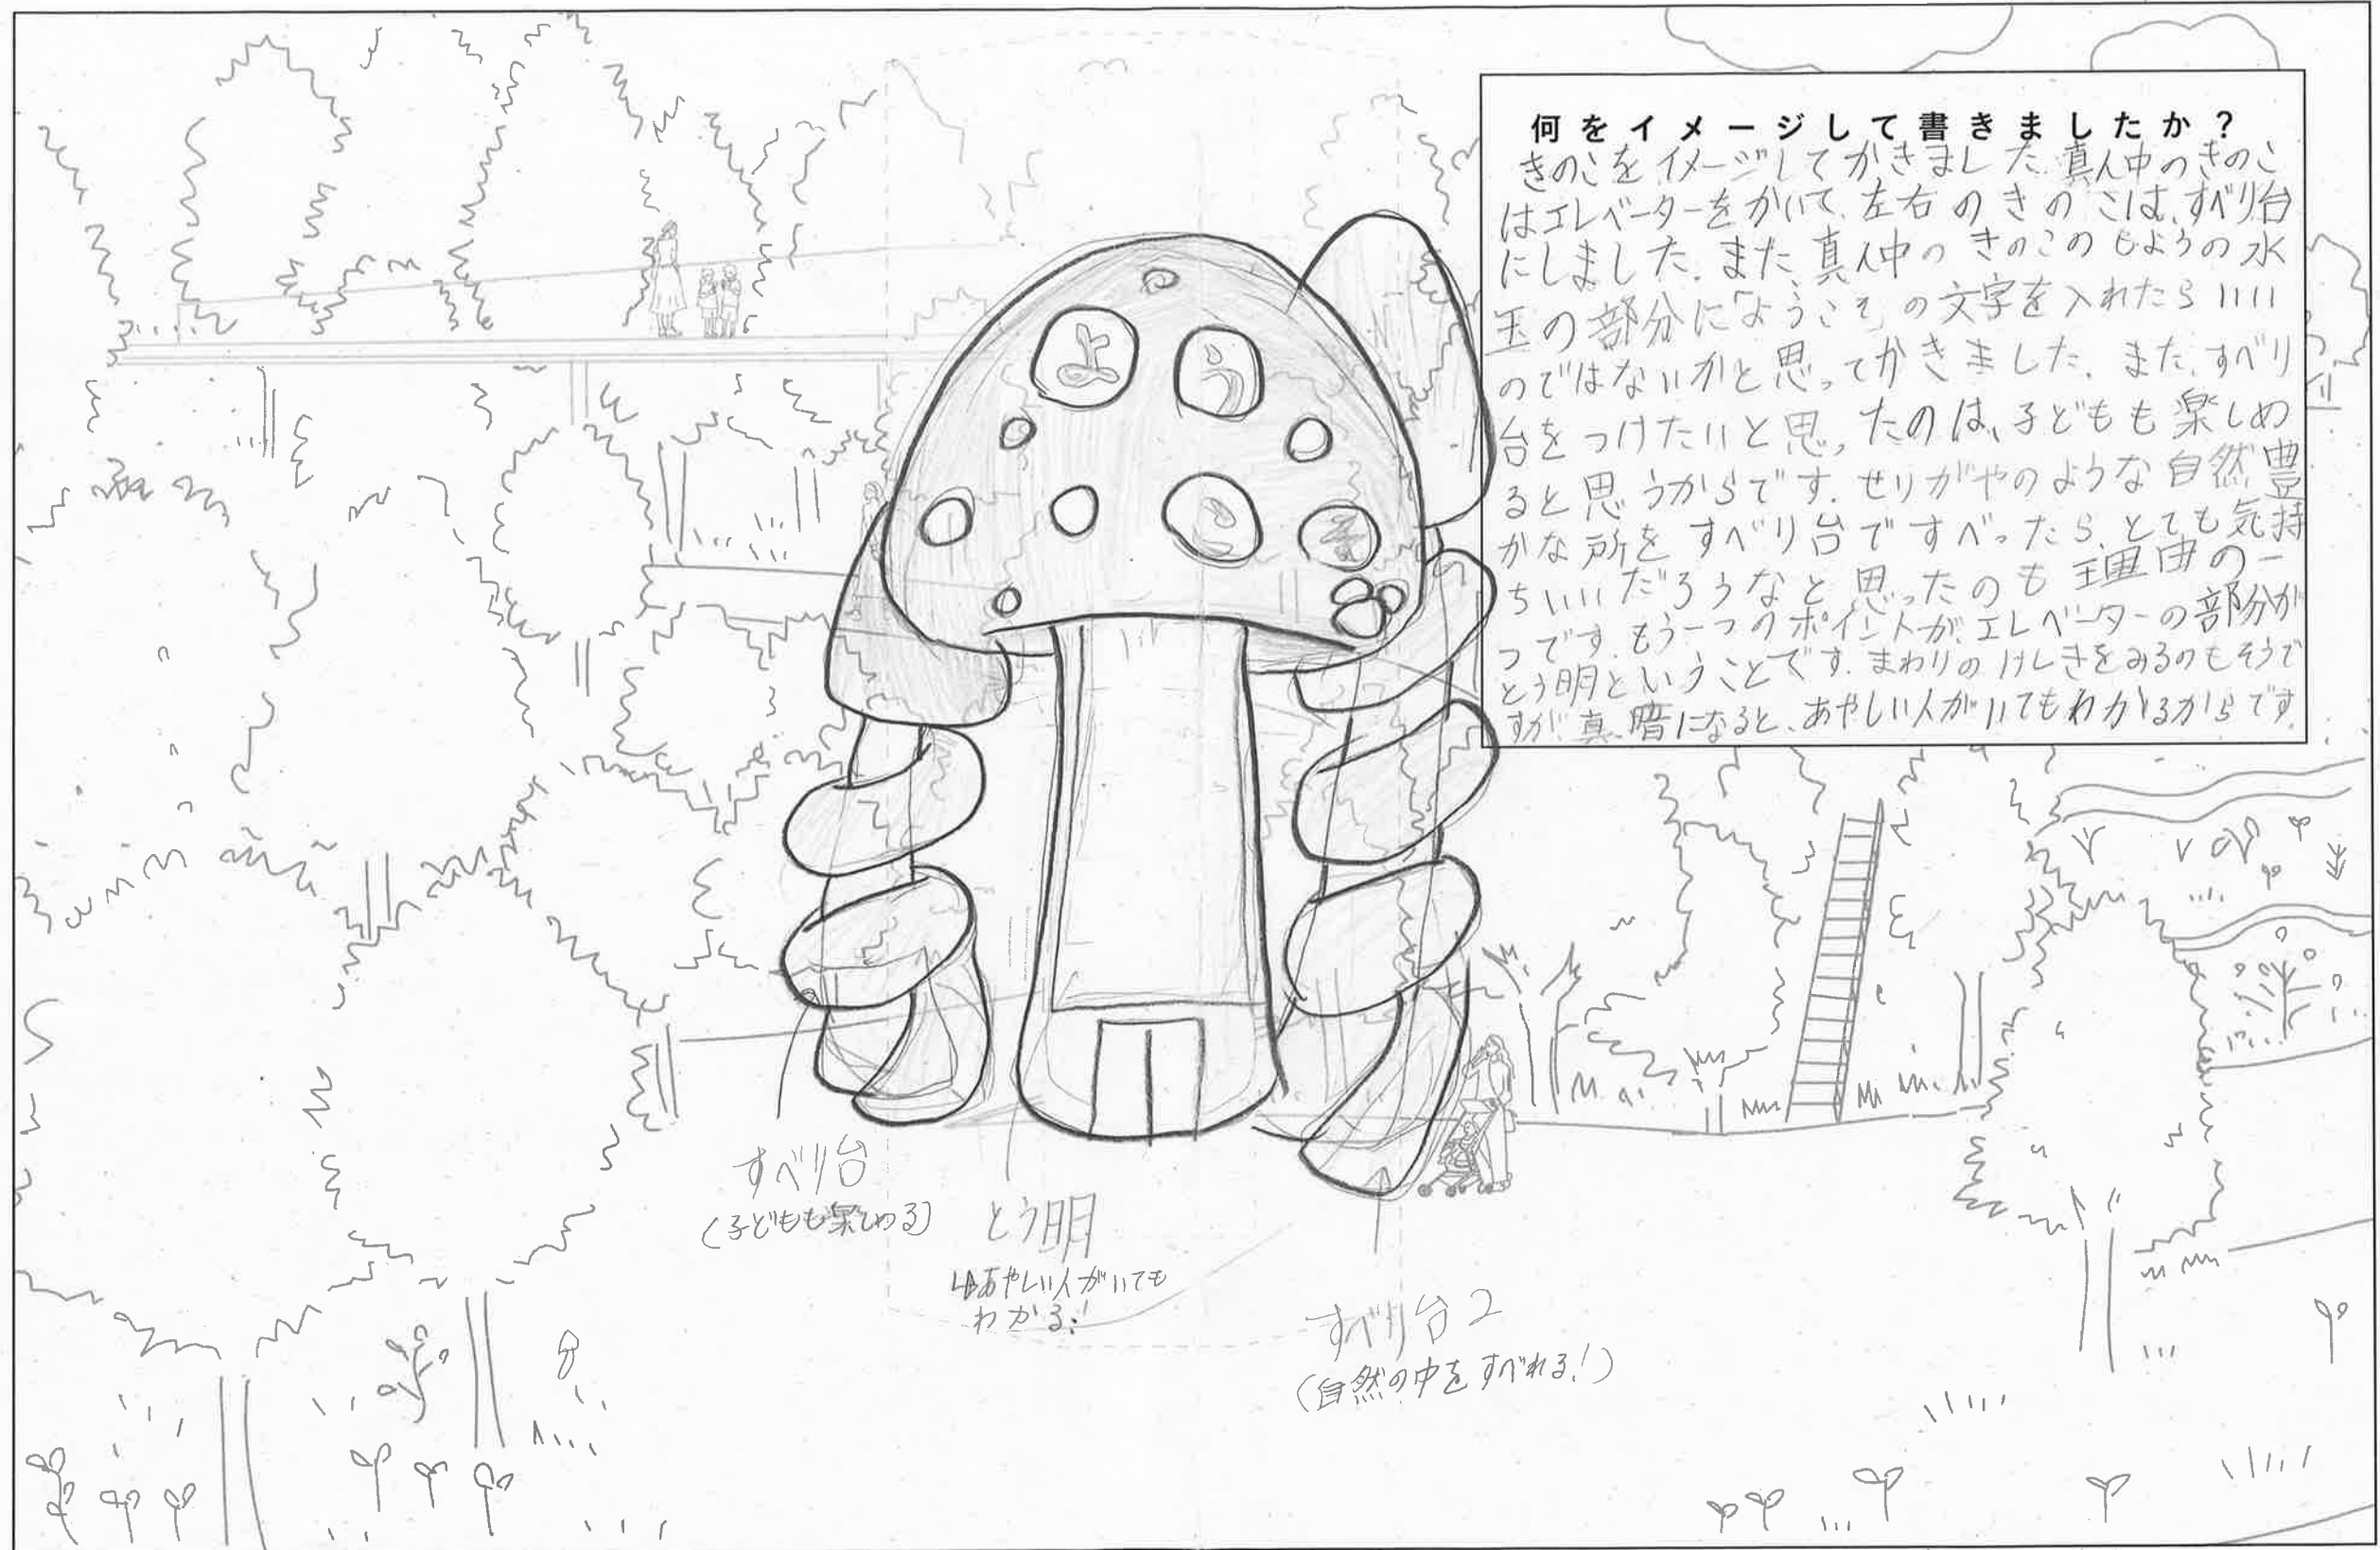 何をイメージして書きましたか？
きのこをイメージしてかきました.真ん中のきのこ
はエレベーターをかいて、左右のきのこは、すべり台
にしました.また、真ん中のきのこのもようの水
玉の部分に「ようこそ」の文字を入れたらいい
のではないかと思ってかきました.また、すべり
台をつけたいと思ったのは、子どもも楽しめ
ると思うからです.せりがやのような自然豊
かな所をすべり台ですべったら、とても気持
ちいいだろうなと思ったのも理由の一
つです.もう一つのポイントが、エレベーターの部分が
とう明ということです.まわりのけしきをみるのもそうで
すが、真っ暗になると、あやしい人がいてもわかるからです.
よう
こそ
すべり台
(子どもも楽しめる)
とう明
↳あやしい人がいても
わかる!
すべり台2
(自然の中をすべれる!)